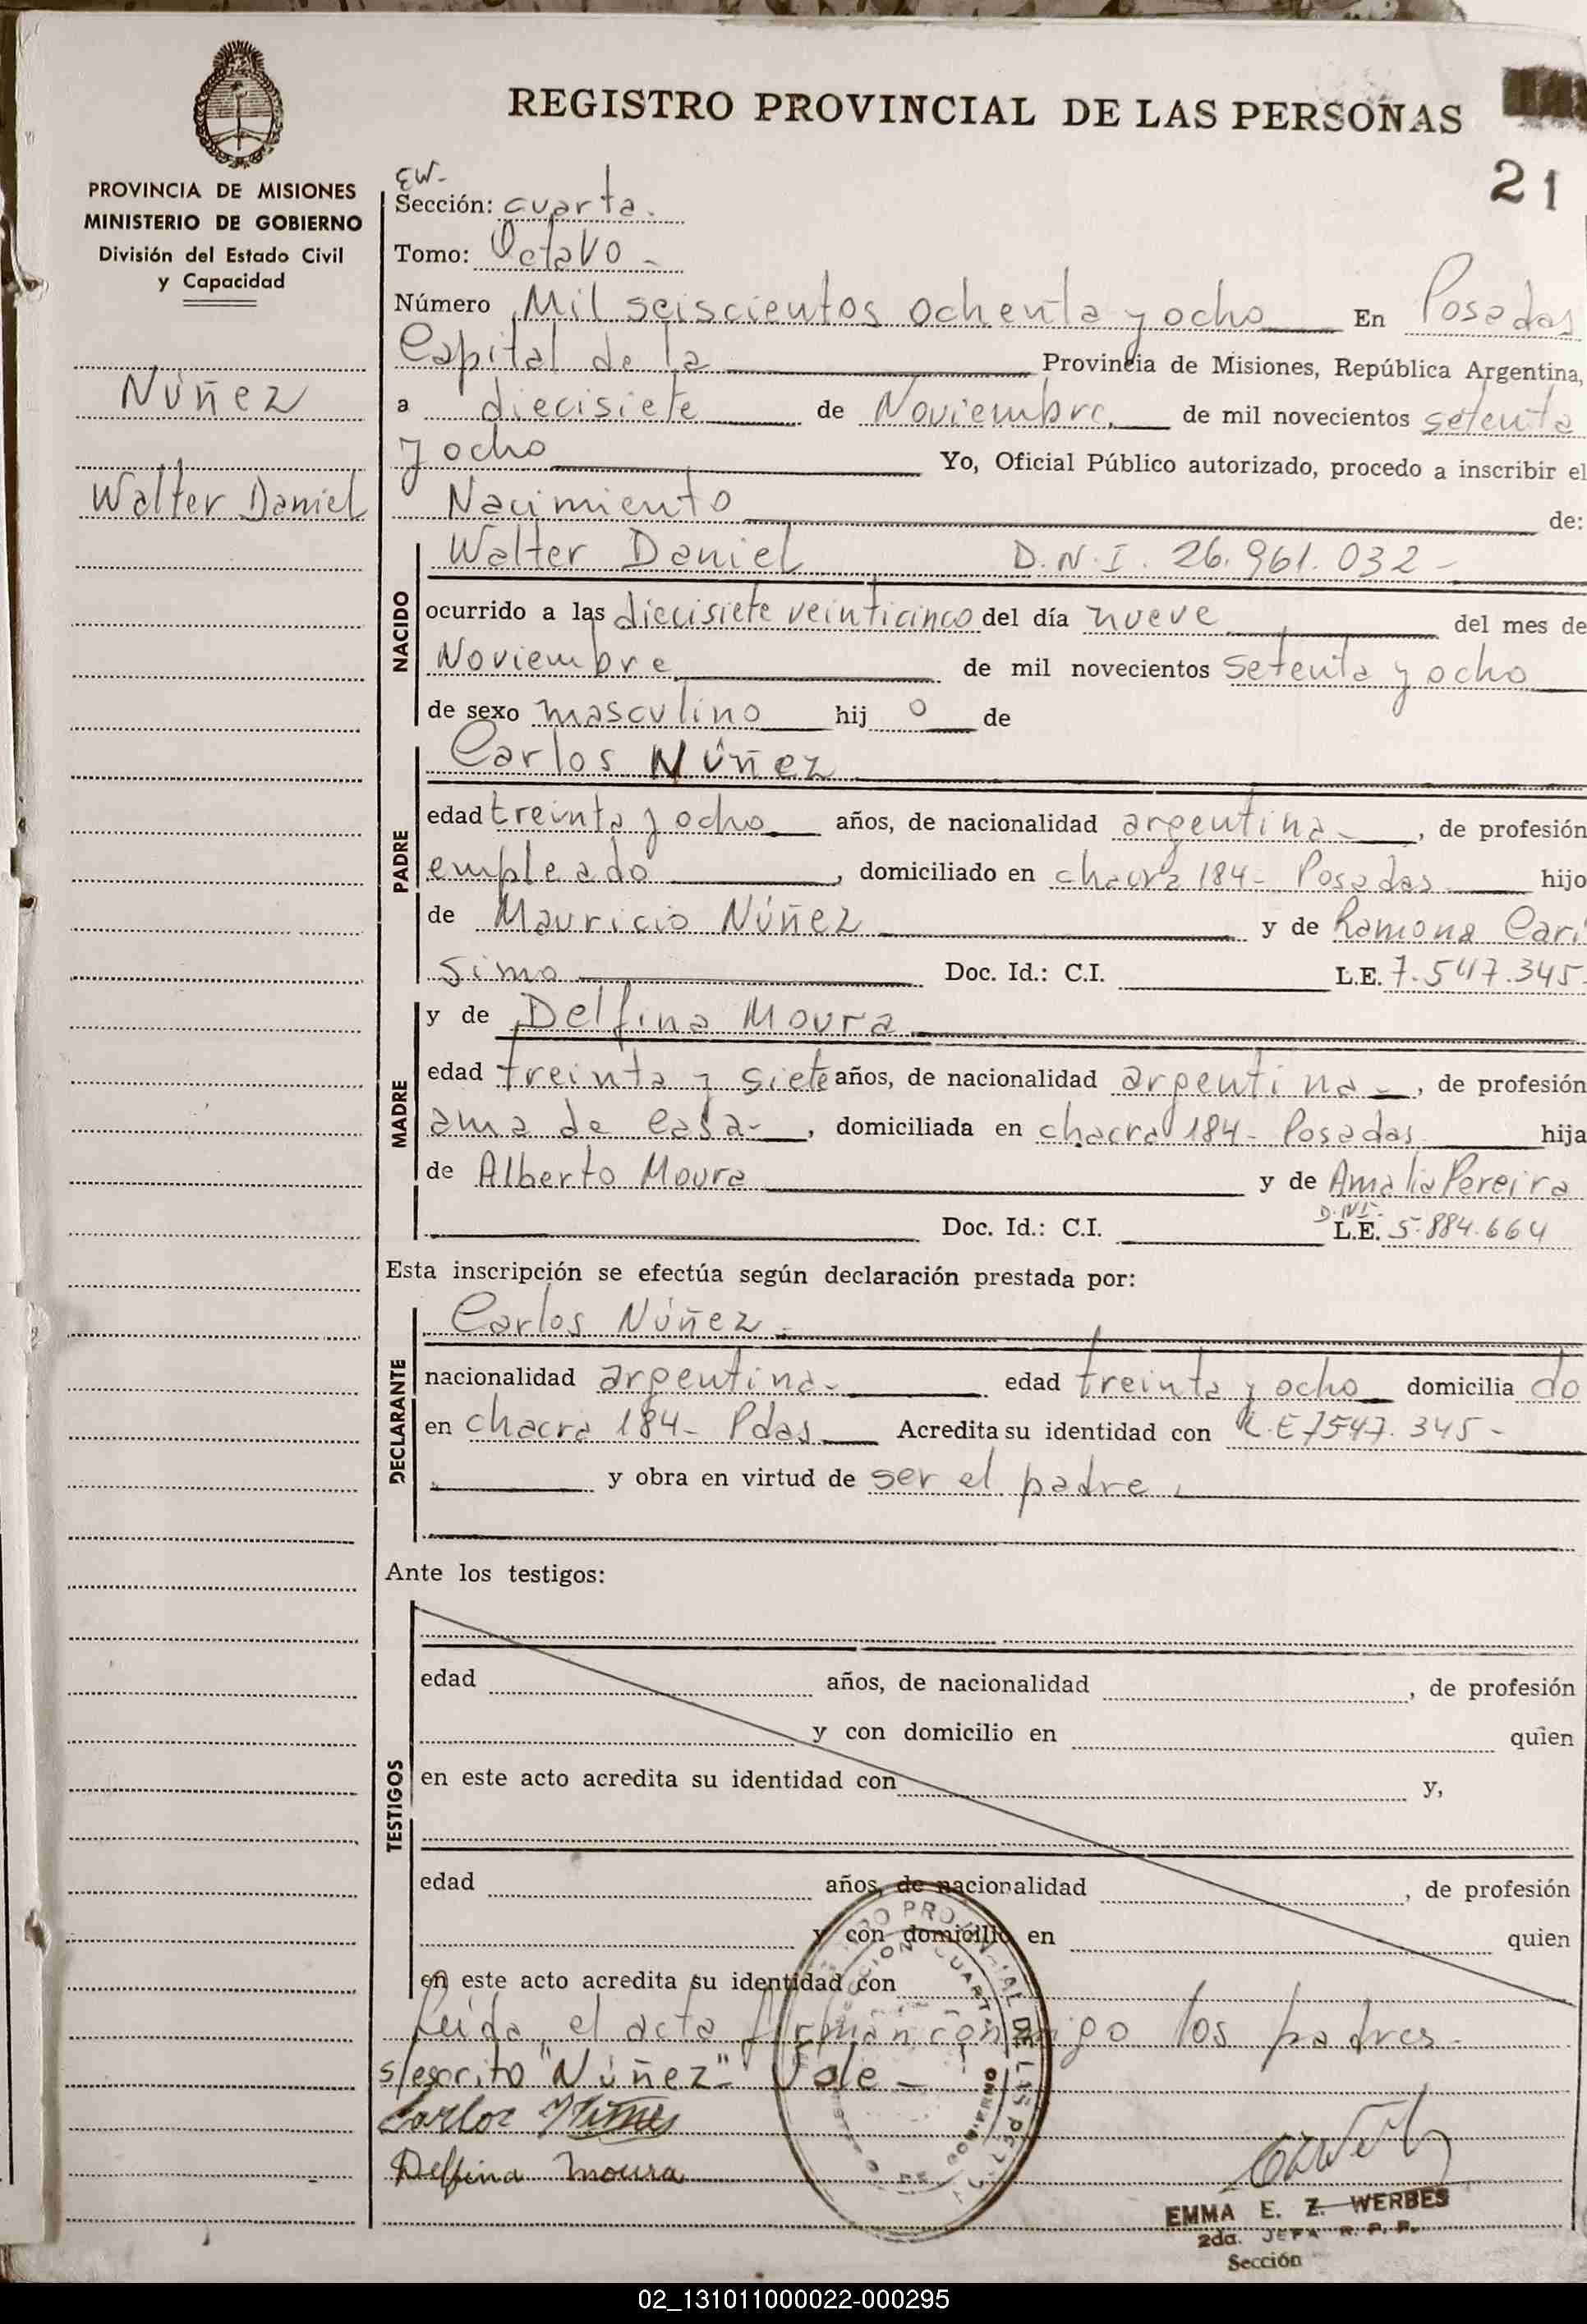 REGISTRO PROVINCIAL DE LAS PERSONAS
21
PROVINCIA DE MISIONES
MINISTERIO DE GOBIERNO
División del Estado Civil
y Capacidad
Núñez
Walter Daniel
EW-
Sección: cuarta.
Tomo: Octavo -
Número Mil seiscientos ochenta y ocho En Posadas
Capital de la Provincia de Misiones, República Argentina,
a diecisiete de Noviembre, de mil novecientos setenta
y ocho Yo, Oficial Público autorizado, procedo a inscribir el
Nacimiento de:
NACIDO
Walter Daniel D.N.I. 26.961.032-
ocurrido a las diecisiete veinticinco del día nueve del mes de
Noviembre de mil novecientos setenta y ocho
de sexo masculino hij o de
PADRE
Carlos Núñez
edad treinta y ocho años, de nacionalidad argentina-, de profesión
empleado, domiciliado en chacra 184- Posadas hijo
de Mauricio Núñez y de Ramona Cari
simo Doc. Id.: C.I. L.E. 7.547.345-
MADRE
y de Delfina Moura
edad treinta y siete años, de nacionalidad argentina-, de profesión
ama de casa-, domiciliada en chacra 184- Posadas hija
de Alberto Moura y de Amalia Pereira
D.N.I.
Doc. Id.: C.I. L.E. 5.884.664
Esta inscripción se efectúa según declaración prestada por:
DECLARANTE
Carlos Núñez-
nacionalidad argentina- edad treinta y ocho domicilia do
en chacra 184- Pdas Acredita su identidad con L.E 7547.345-
y obra en virtud de ser el padre.
Ante los testigos:
TESTIGOS
edad años, de nacionalidad, de profesión
y con domicilio en quien
en este acto acredita su identidad con y,
edad años, de nacionalidad, de profesión
y con domicilio en quien
en este acto acredita su identidad con
Leída el acta firman conmigo los padres-
s/escrito "Núñez"- Vale-
Carlos Núñez
Delfina Moura
EMMA E. Z. WERBES
2da. JEFA R. P. P.
Sección
02_131011000022-000295